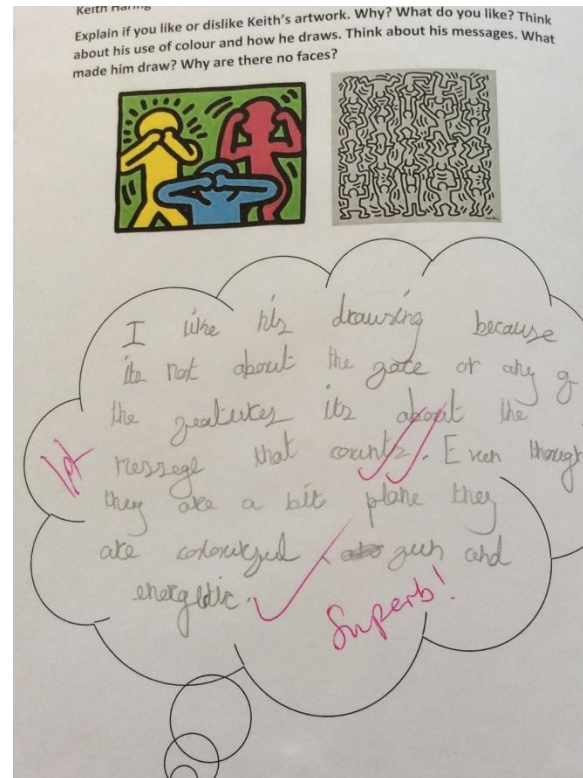 Keith Haring
Explain if you like or dislike Keith's artwork. Why? What do you like? Think
about his use of colour and how he draws. Think about his messages. What
made him draw? Why are there no faces?
I like his drawing because
its not about the face or any of
the features its about the
messege that counts. Even though
they are a bit plane they
are colourful, fun and
energetic.
Superb!